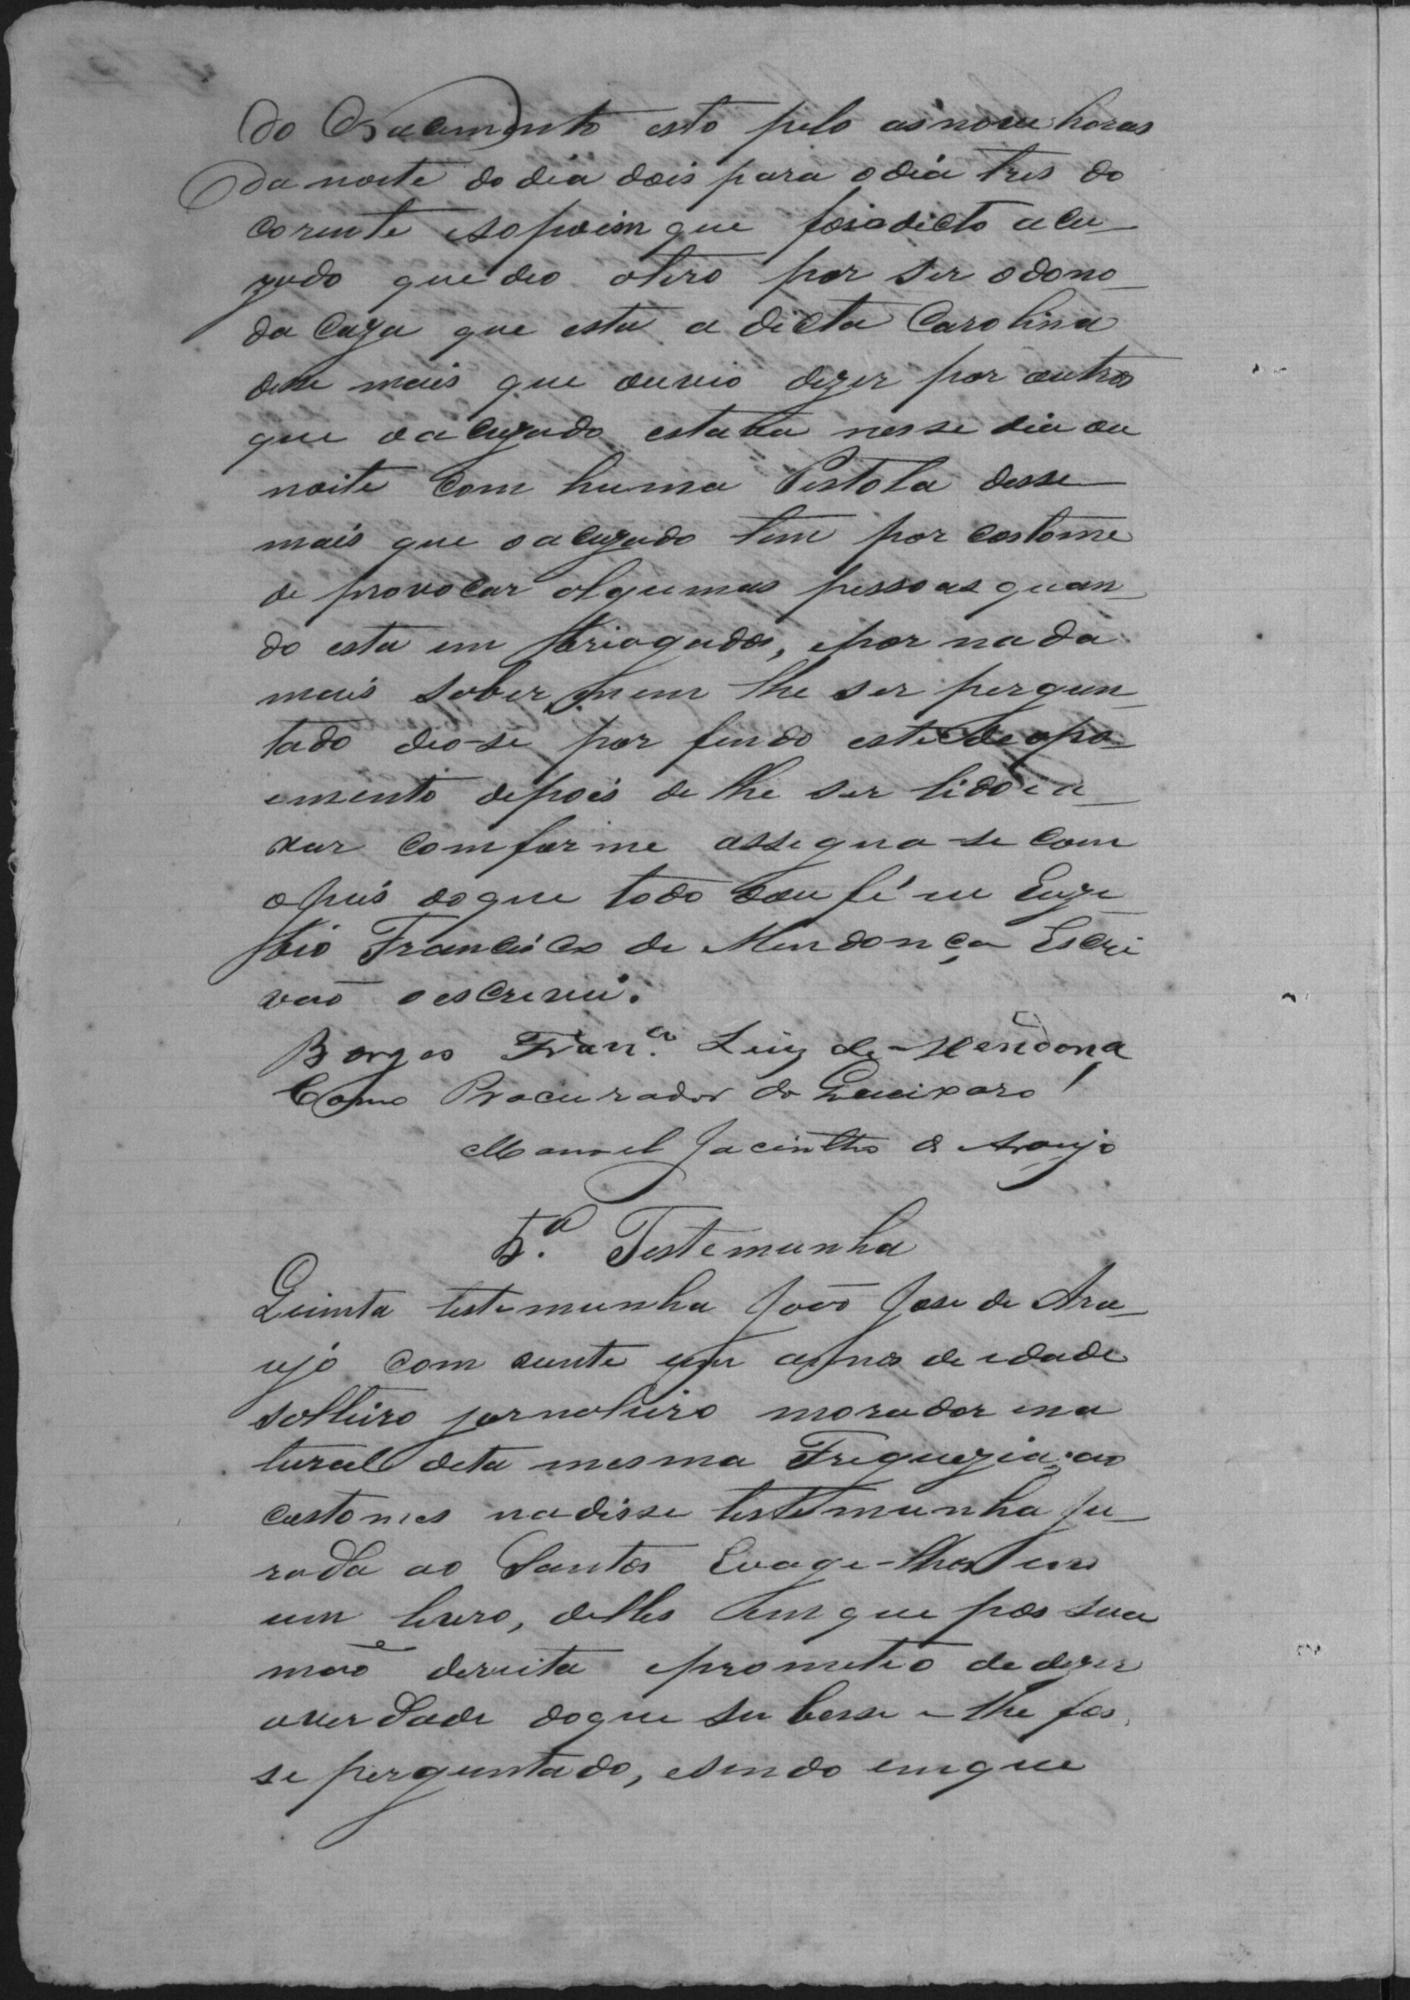 do Nacimento esto pelo as nove horas
da noite do dia dois para o dia tres do
corente e so poim que fosi o dicto acu-
zado que deo o tiro por ser o dono
da Caza que esta a dicta Carolina
dise mais que ouvio dizer por outros
que o acuzado estava nesse dia ou
noite Com huma Pistola desse
mais que o acuzado tem por costome
de provocar algumas pessoas quan-
do esta em briagados, e por nada
mais saber, nem lhe ser pergun-
tado deo-se por findo este deopo-
emento depois de lhe ser lido e a-
xar comforme assegna-se com
o puis do que todo dou fé eu Euze-
bio Francisco de Mendonça Escri
vaõ o escrevi.
Borges Fran.co Luiz de Mendonça
Como Procurador do Queixozo
Manoel Jacintho de Araujo
5.a Testemunha
Quinta testemunha Joaõ Jose de Arau-
ujo com vente um annos de idade
solteiro jornaleiro morador e na
tural deta mesma Freguezia; ao
costomes nadisse testemunha ju-
rada ao Santos Evage-lhos em
um livro, delles em que pos sua
maõ dereita e prometeo de dizer
a verdade do que subesse e lhe fos
se perguntado, e sendo emque